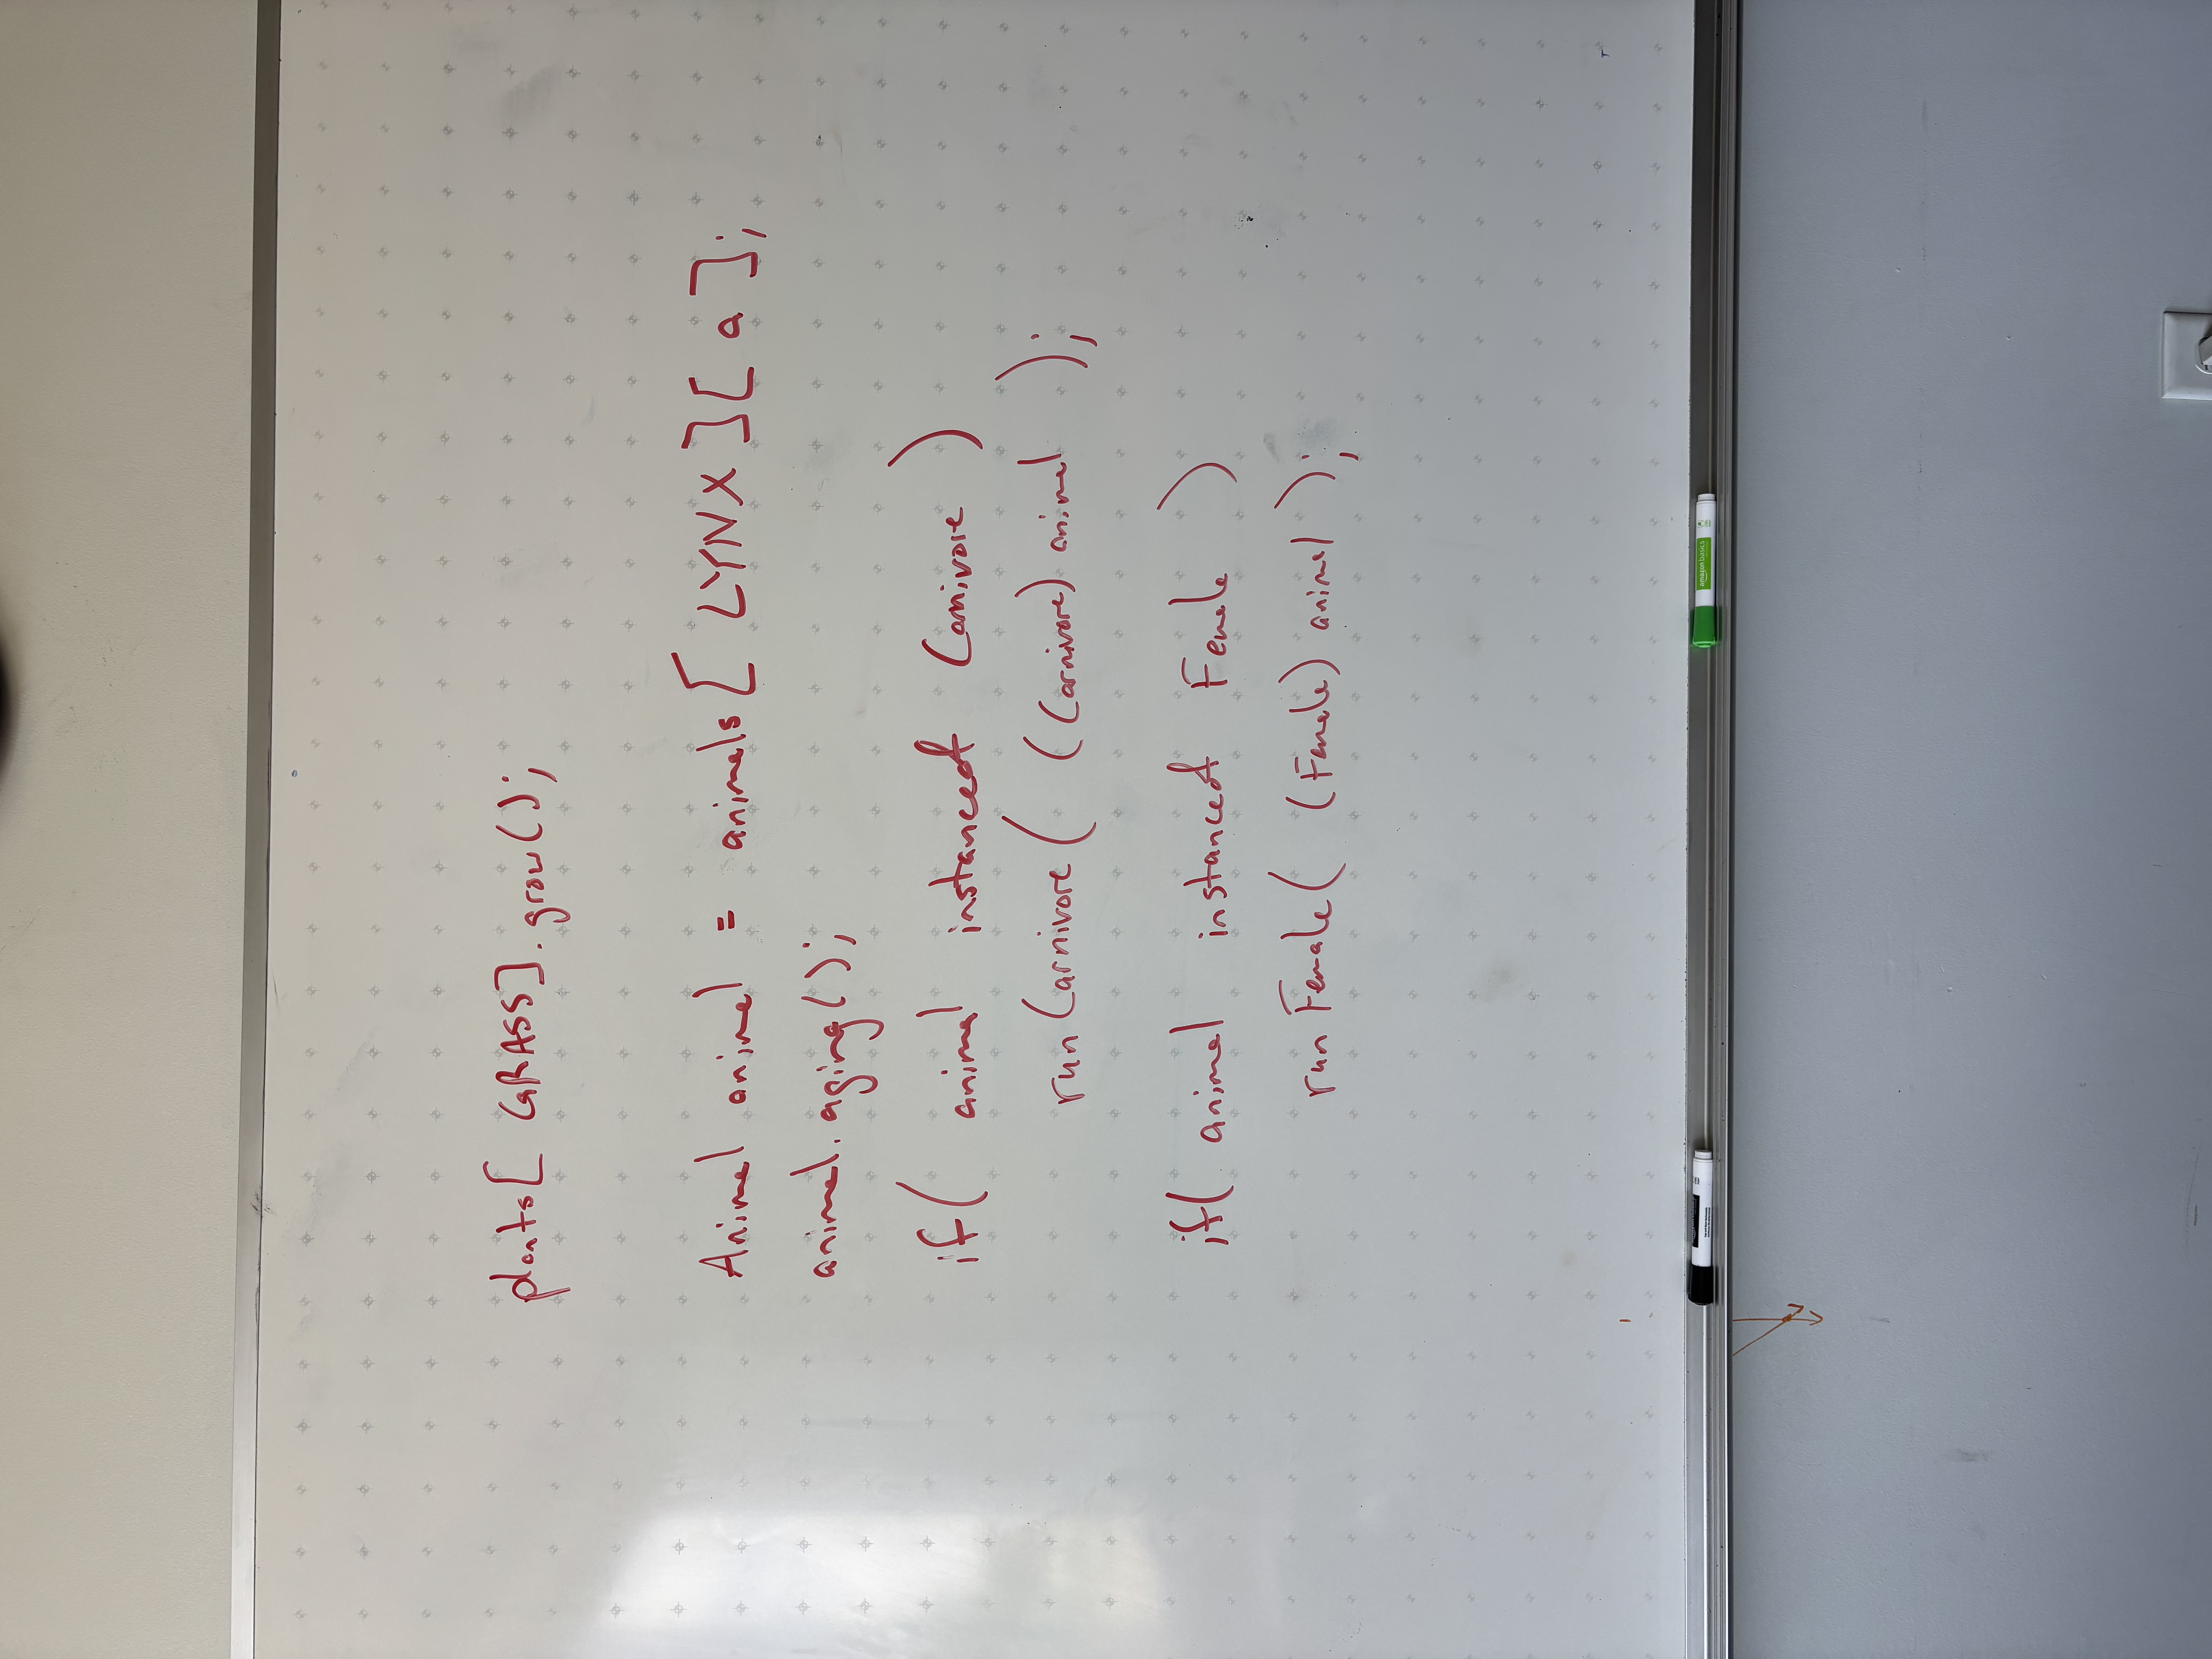 plants[ GRASS].grow();
Animal animal = animals[ LYNX ][ a ];
animal.aging();
if( animal instanceof Carnivore )
run Carnivore( (Carnivore) animal );
if( animal instanceof Female )
run Female( (Female) animal );
amazon basics